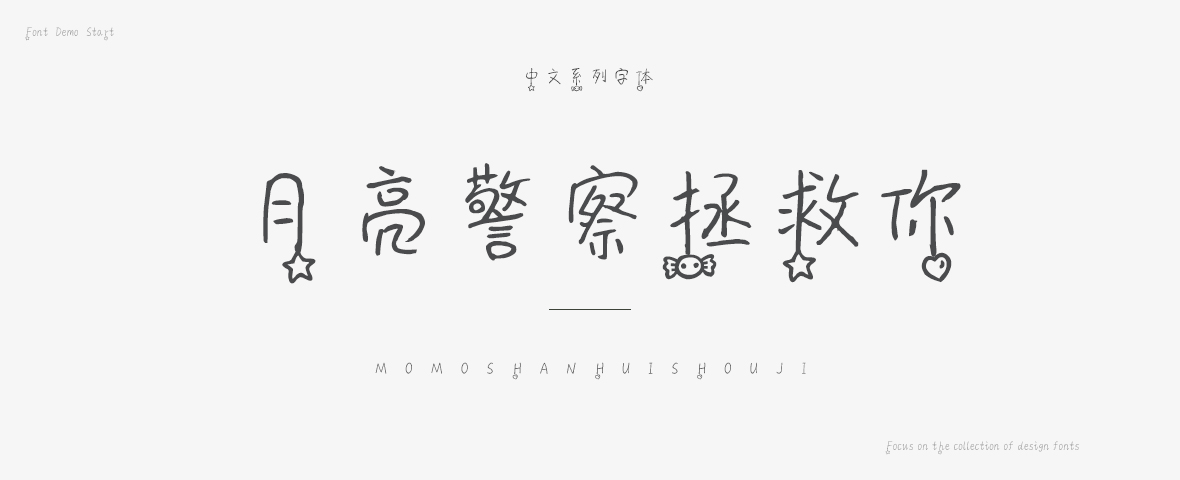 Font Demo Start
中文系列字体
月亮警察拯救你
MOMOSHANHUISHOUJI
Focus on the collection of design fonts